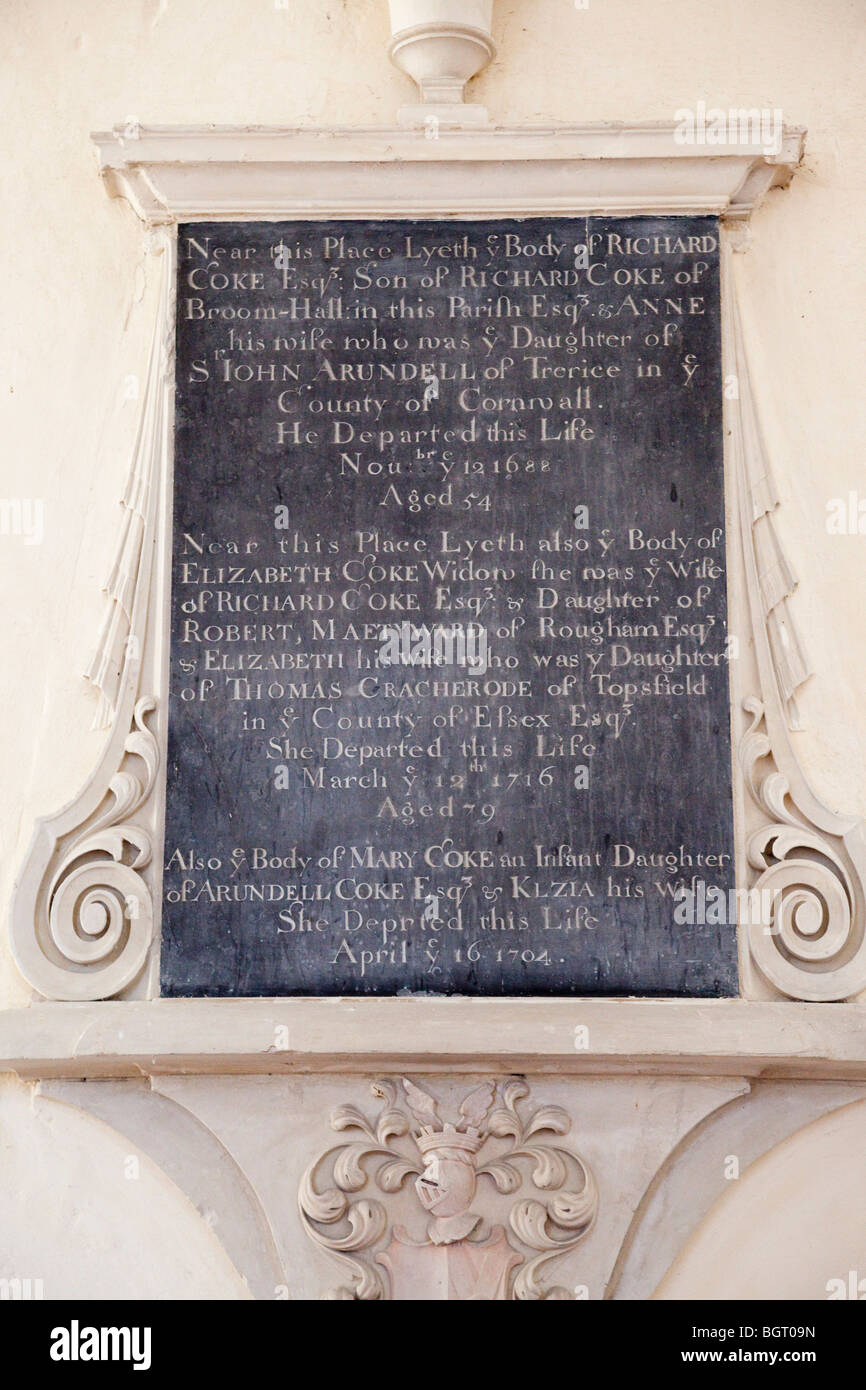 Near this Place Lyeth yͤ Body of RICHARD
COKE Esqʳ: Son of RICHARD COKE of
Broom-Hall: in this Pariſh Esqʳ. & ANNE
his wife who was yͤ Daughter of
Sʳ IOHN ARUNDELL of Trerice in yͤ
County of Cornwall.
He Departed this Life
Nou:ᵇʳᵉ yͤ 12 1688
Aged 54
Near this Place Lyeth also yͤ Body of
ELIZABETH COKE Widow ſhe was yͤ Wife
of RICHARD COKE Esqʳ: & Daughter of
ROBERT, MAETYWARD of Rougham Esqʳ
& ELIZABETH his wife who was yͤ Daughter
of THOMAS CRACHERODE of Topsfield
in yͤ County of Eſsex Esqʳ.
She Departed this Life
March yͤ 12ᵗʰ 1716
Aged 79
Also yͤ Body of MARY COKE an Infant Daughter
of ARUNDELL COKE Esqʳ & KLZIA his wife
She Deprted this Life
April yͤ 16 1704.
alamy
alamy
Image ID: BGT09N
www.alamy.com